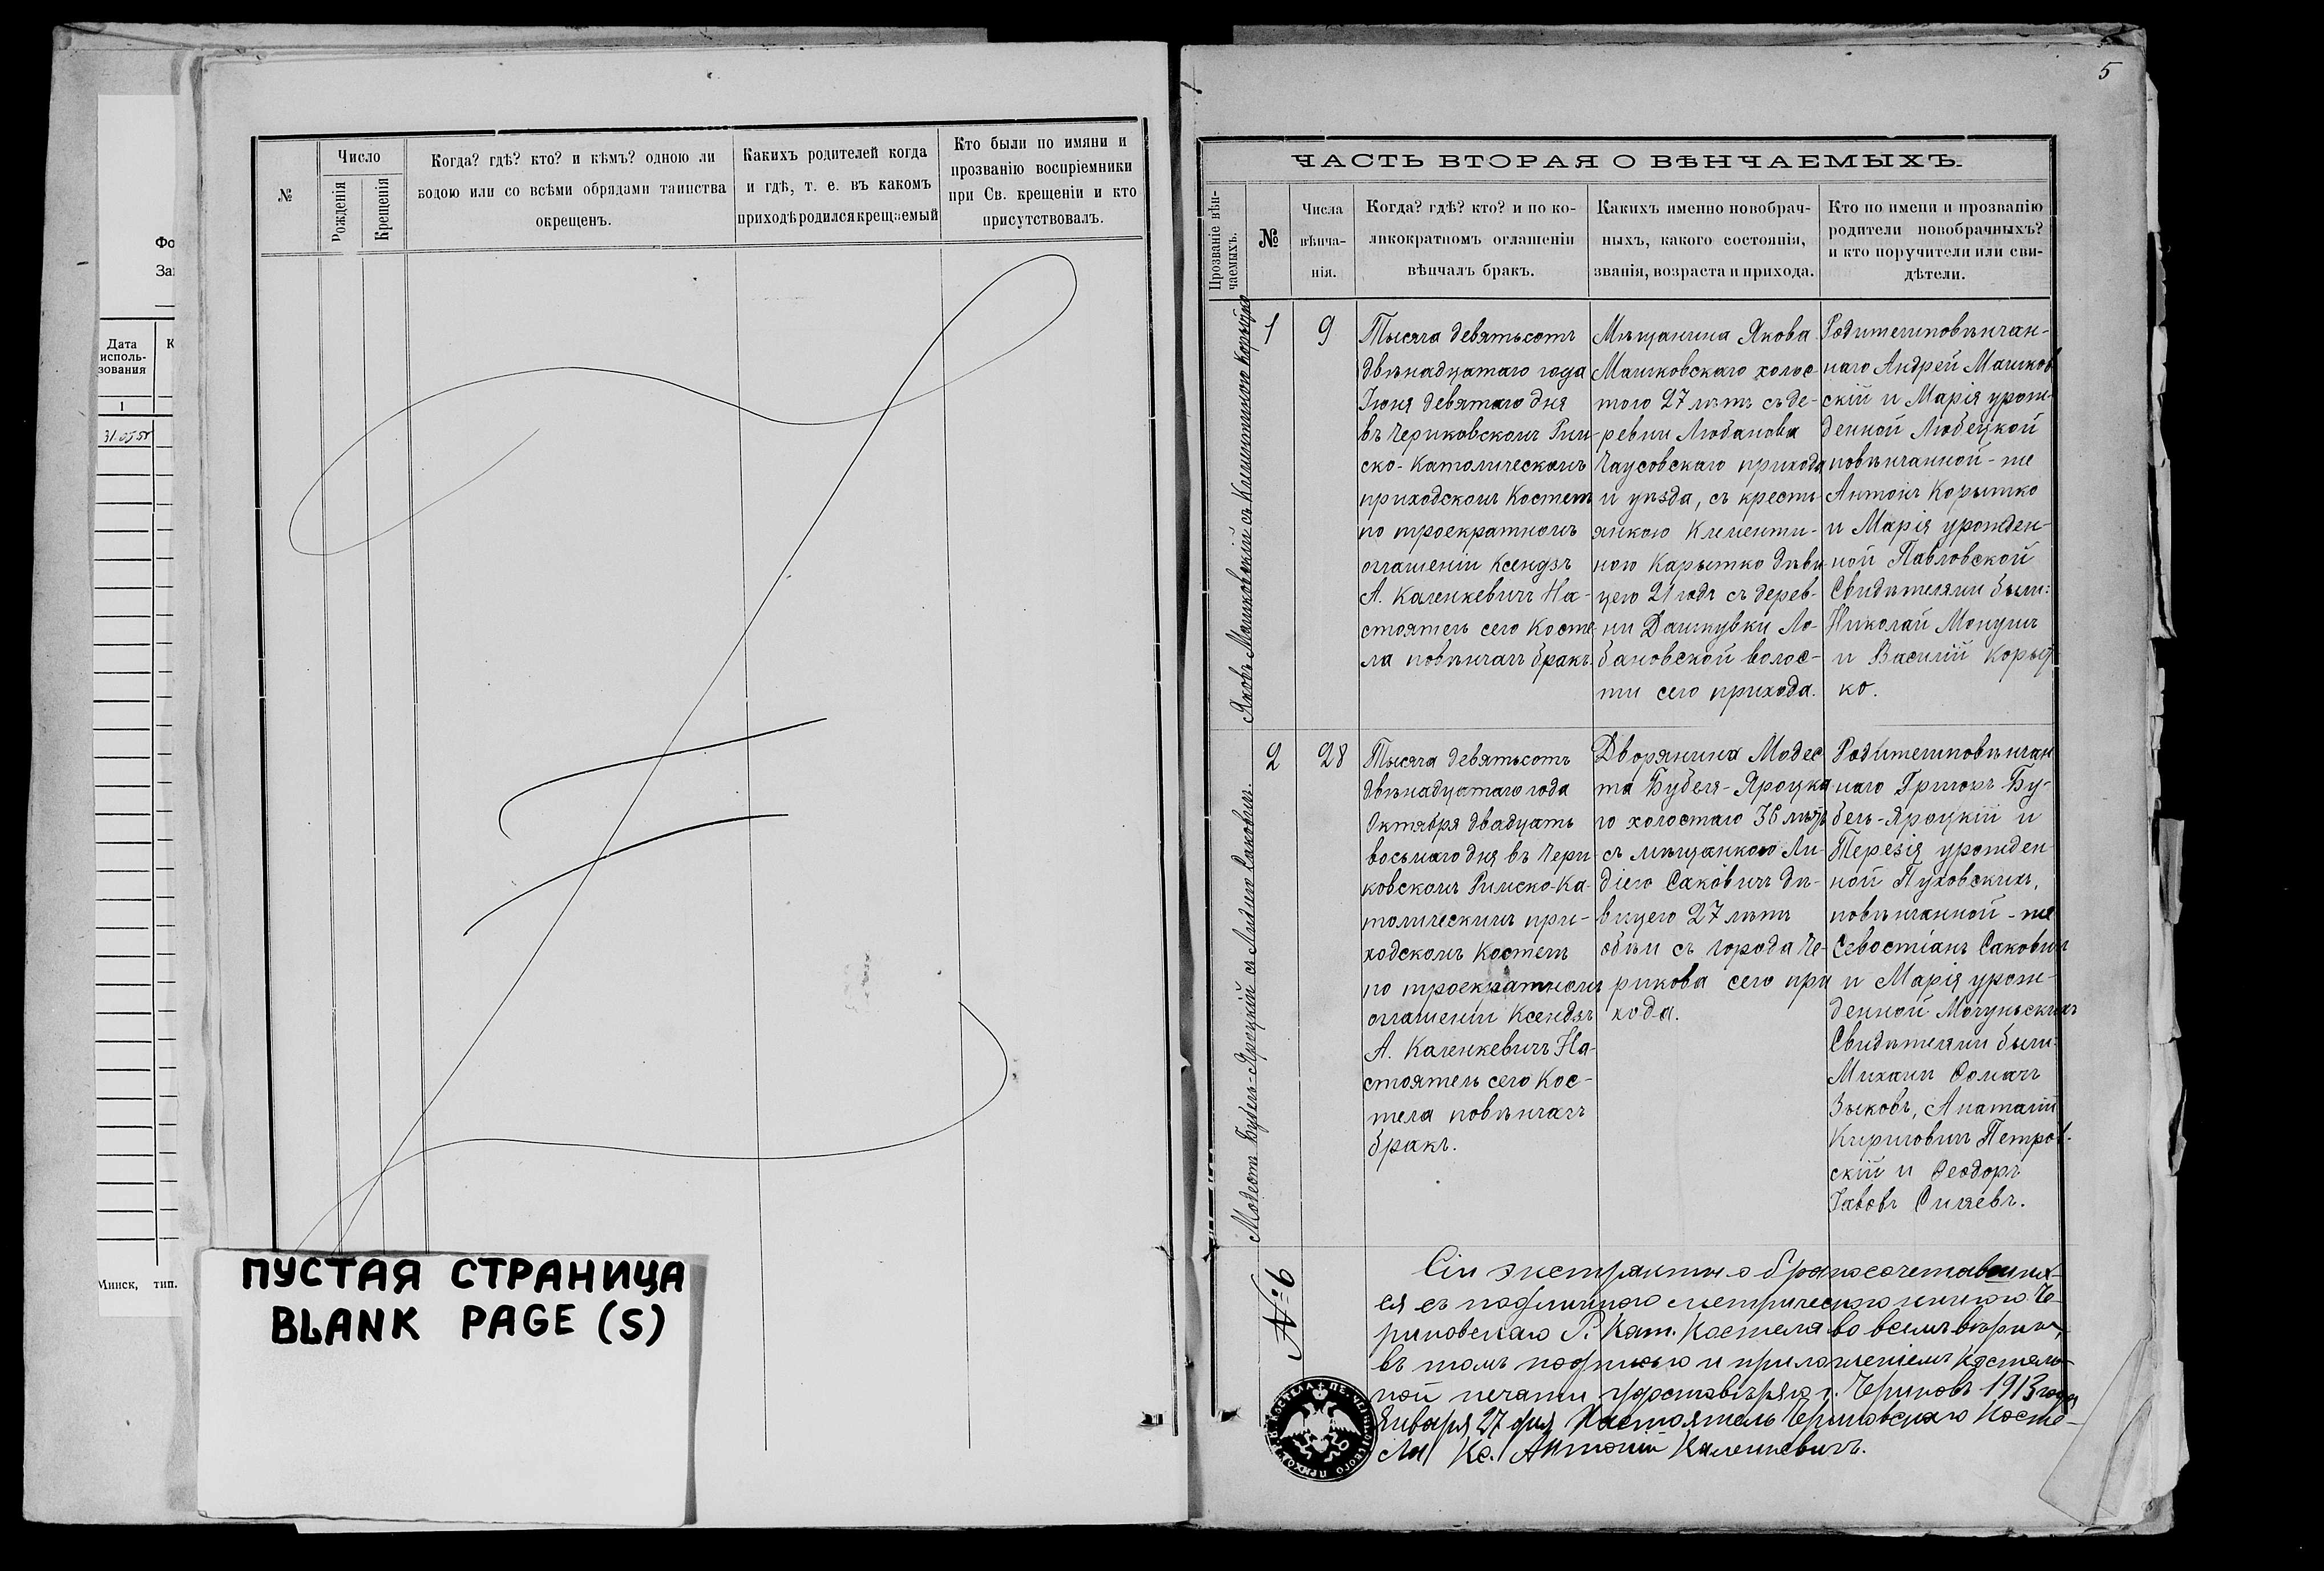 5
Фо
За
Дата
исполь-
зования
К
1
31.05.51
Минск, тип.
№
Число
Рожденія
Крещенія
Когда? гдѣ? кто? и кѣмъ? одною ли
водою или со всѣми обрядами таинства
окрещенъ.
Какихъ родителей когда
и гдѣ, т. е. въ какомъ
приходѣ родился крещаемый
Кто были по имяни и
прозванію воспріемники
при Св. крещеніи и кто
присутствовалъ.
ПУСТАЯ СТРАНИЦА
BLANK PAGE (S)
ЧАСТЬ ВТОРАЯ О ВѢНЧАЕМЫХЪ.
Прозваніе вѣн-
чаемыхъ.
№
Числа
вѣнча-
нія.
Когда? гдѣ? кто? и по ко-
ликократномъ оглашеніи
вѣнчалъ бракъ.
Какихъ именно новобрач-
ныхъ, какого состоянія,
званія, возраста и прихода.
Кто по имени и прозванію
родители новобрачныхъ?
и кто поручители или сви-
дѣтели.
Яковъ Машковскій съ Клементиною Корытко
1
9
Тысяча девятьсотъ
двѣнадцатаго года
Іюня девятаго дня
въ Чериковскомъ Рим-
ско-Католическомъ
приходскомъ Костелѣ
по троекратномъ
оглашеніи Ксендзъ
А. Каленкевичъ На-
стоятель сего Косте-
ла повѣнчалъ бракъ.
Мѣщанина Якова
Машковскаго холос-
того 27 лѣтъ съ де-
ревни Любанова
Чаусовскаго прихода
и уѣзда, съ кресть-
янкою Клементи-
ною Карытко дѣви-
цею 21 годъ съ дерев-
ни Дашкувки Ло-
бановской волос-
ти сего прихода.
Родители повѣнчан-
наго Андрей Машков
скій и Марія урож-
денной Любецкой
повѣнчанной-же
Антонъ Корытко
и Марія урожден-
ной Павловской
Свидѣтелями были:
Николай Монуил
и Василій Корыт
ко.
Модестъ Бубель-Яроцкій съ Лидіею Саковичъ.
2
28
Тысяча девятьсотъ
двѣнадцатаго года
Октября двадцать
восьмаго дня въ Чери-
ковскомъ Римско-Ка-
толическимъ при-
ходскомъ Костелѣ
по троекратномъ
оглашеніи Ксендзъ
А. Каленкевичъ На-
стоятель сего Кос-
тела повѣнчалъ
бракъ.
Дворянина Модес
та Бубеля-Яроцка
го холостаго 36 лѣтъ
съ мѣщанкою Ли-
діею Саковичъ дѣ-
вицею 27 лѣтъ
обѣи съ города Че-
рикова сего при
хода.
Родители повѣнчан
наго Григоръ Бу-
бель-Яроцкій и
Терезія урожден
ной Пуховскихъ,
повѣнчанной-же
Севостіанъ Саковичъ
и Марія урож-
денной Мочульскихъ
Свидѣтелями были:
Михаилъ
Зыковъ, Анатолій
Кириловичъ Петров-
скій и Ѳеодоръ
№ 6
Сіи экстракты о бракосочетавших-
ся съ подлинною метрическою книгою Че-
риковскаго Р. Кат. Костела во всемъ вѣрны,
въ томъ подписью и приложеніемъ костель-
ной печати удостовѣряю г. Чериковъ 1913 года
Января 27 дня Настоятель Чериковскаго Косте-
ла Кс. Антоній Каленкевичъ.